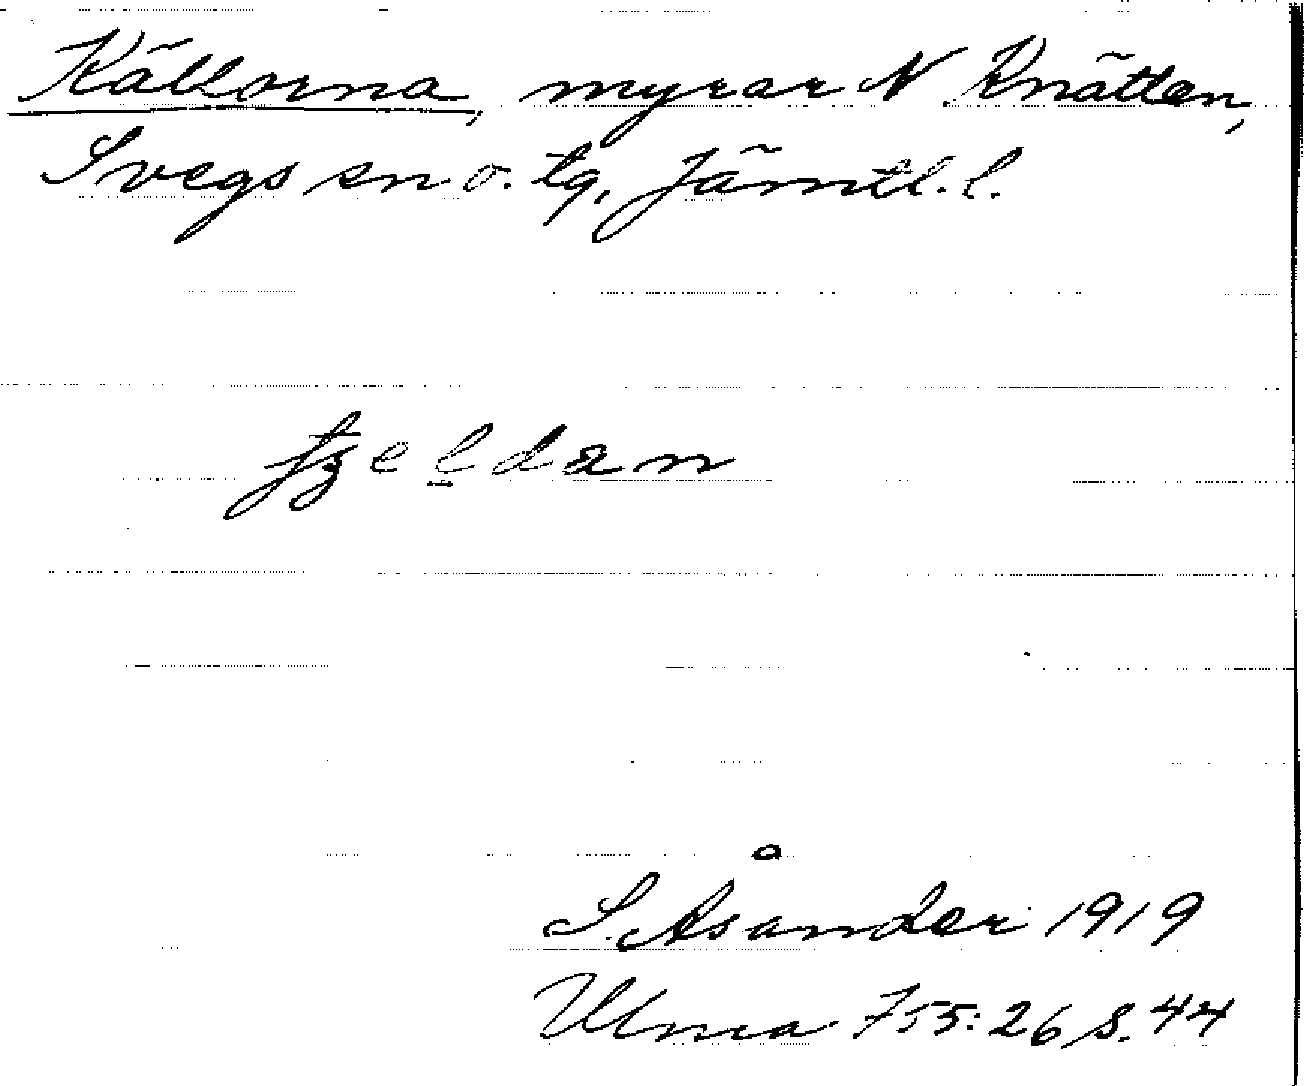 Källorna, myrar N Knätten,
Svegs sn o. tg, Jämtl. l.
fʒeldan
S. Åsander 1919
Ulma 755:26 s. 44